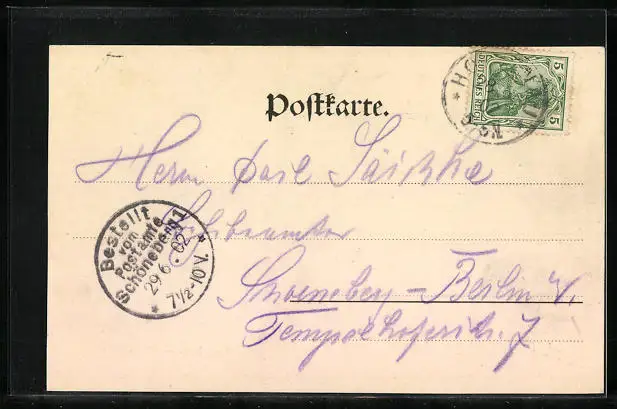 5 DEUTSCHES REICH 5
Postkarte.
Herrn
Bestellt
vom
Postamte
Schöneberg 1
29.6.02
* 7½-10 V. *
Schoeneberg-Berlin W.
Tempelhoferstr. 7